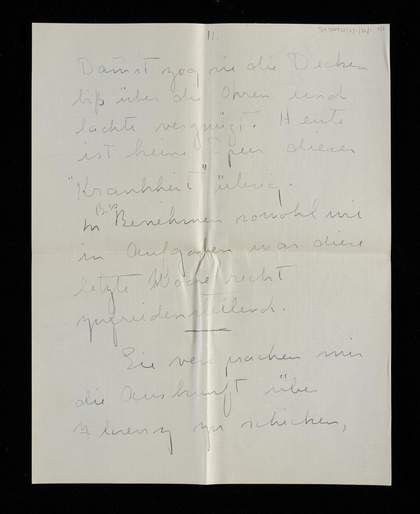 11.
Damit zog sie die Decken
bis über die Ohren und
lachte vergnügt. Heute
ist keine Spur dieser
"Krankheit" übrig.
Im Benehmen sowohl wie
in Aufgaben war diese
letzte Woche recht
zufriedenstellend.
Sie versprachen mir
die Auskunft über
zu schicken,